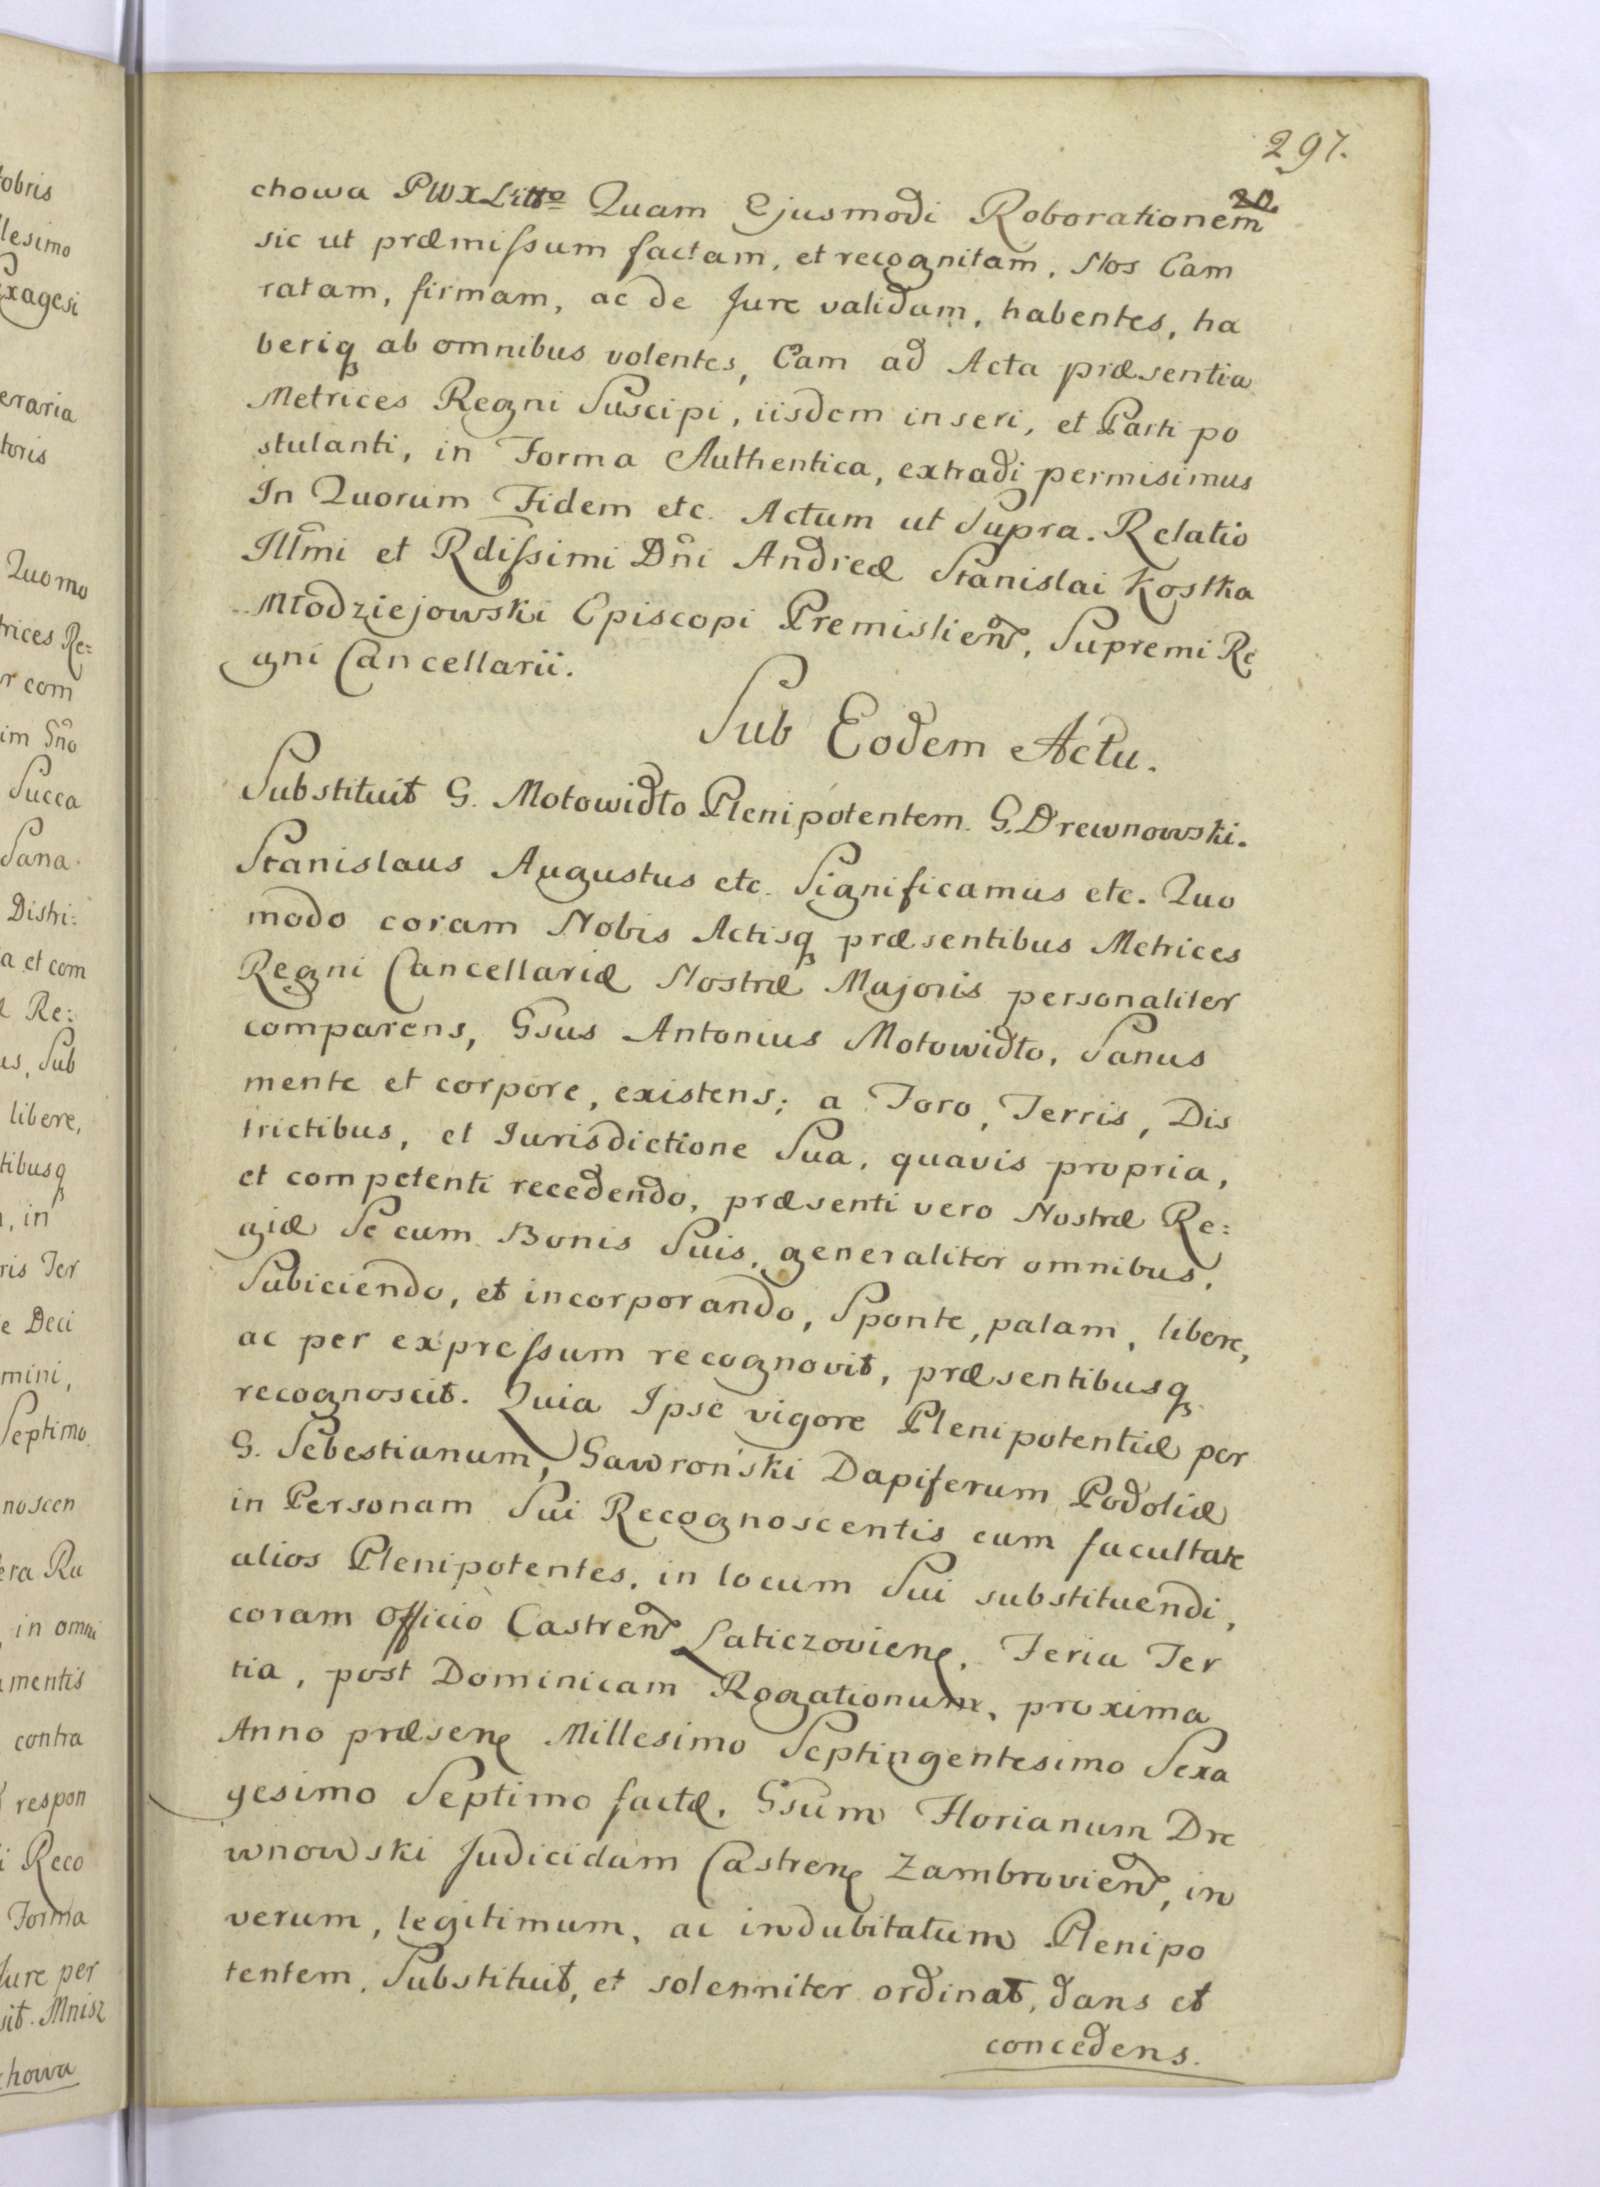 297.
20.
chowa PWXLitto Quam Ejusmodi Roborationem
sic ut præmissum factam, et recognitam, Nos Eam
ratam, firmam, ac de Jure validam, habentes, ha
beriq ab omnibus volentes, Eam ad Acta præsentia
Metrices Regni Suscipi, iisdem inseri, et Parti po
stulanti, in Forma Authentica, extradi permisimus
In Quorum Fidem etc. Actum ut Supra. Relatio
Illmi et Rdissimi Dni Andreæ Stanislai Kostka
Młodziejowski Episcopi Premislien, Supremi Re
gni Cancellarii.
Sub Eodem Actu.
Substituit G. Motowidło Plenipotentem G. Drewnowski.
Stanislaus Augustus etc. Significamus etc. Quo
modo coram Nobis Actisq præsentibus Metrices
Regni Cancellariæ Nostræ Majoris personaliter
comparens, Gsus Antonius Motowidło, Sanus
mente et corpore, existens; a Foro, Terris, Dis
trictibus, et Jurisdictione Sua, quavis propria,
et competenti recedendo, præsenti vero Nostræ Re:
giæ Se cum Bonis Suis, generaliter omnibus,
Subiciendo, et incorporando, Sponte, palam, libere,
ac per expressum recognovit, præsentibusq
recognoscit. Quia Ipse vigore Plenipotentiæ per
G. Sebestianum, Gawroński Dapiferum Podoliæ
in Personam Sui Recognoscentis cum facultate
alios Plenipotentes, in locum Sui substituendi,
coram Officio Castren Laticzovien, Feria Ter
tia, post Dominicam Rogationum, proxima
Anno præsen Millesimo Septingentesimo Sexa
gesimo Septimo factæ, Gsum Florianum Dre
wnowski Judicidam Castren Zambrovien, in
verum, legitimum, ac indubitatum Plenipo
tentem, Substituit, et solenniter ordinat, dans et
concedens.
tobris
lesimo
exagesi
eraria
toris
Quomo
trices Re=
r com
im Gno
Succa
Sana
Distri:
a et com
Re:
us, Sub
libere,
tibusq
, in
ris Ter
e Deci
mini,
Septimo
noscen
era Ru
, in omni
amentis
contra
respon
i Reco
Forma
Jure per
sit. Mnisz
chowa